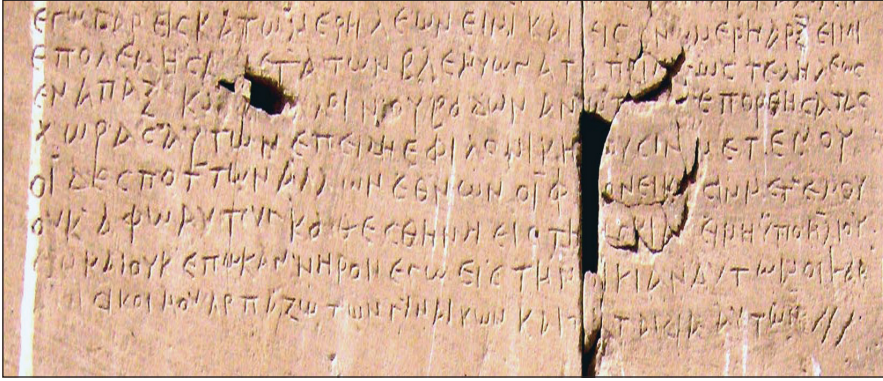 ΕΓΩ ΓΑΡ ΕΙΣ ΚΑΤΩ ΜΕΡΗ ΛΕΩΝ ΕΙΜΙ ΚΑΙ ΕΙΣ ΑΝΩ ΜΕΡΗ ΑΡΞ ΕΙΜΙ
ΕΠΟΛΕΜΗΣΑ ΜΕΤΑ ΤΩΝ ΒΛΕΜΥΩΝ ΑΠΟ ΕΩΣ ΤΕΛΗΛΕΩΣ
ΕΝ ΑΠΑΞ ΝΟΥΒΑΔΩΝ ΕΠΟΡΘΗΣΑ ΤΑΣ
ΧΩΡΑΣ ΑΥΤΩΝ ΕΠΕΙΔΗ ΕΦΙΛΟΝΙΚΗΣΟΥΣΙΝ ΜΕΤ ΕΜΟΥ
ΟΪ ΔΕΣΠΟΤ ΤΩΝ ΑΛΛΩΝ ΕΘΝΩΝ ΟΪ ΜΕΤ ΕΜΟΥ
ΟΥΚ ΑΦΩ ΑΥΤΟΥΣ ΚΑΘΕΣΘΗΝΑΙ ΕΙΣ ΤΗΝ ΣΚΙΑΝ ΕΙ ΜΗ ΫΠΟ ΗΛΙΟΥ
ΚΑΙ ΟΥΚ ΕΠΩΚΑΝ ΝΗΡΟΝ ΕΣΩ ΕΙΣ ΤΗΝ ΟΙΚΙΑΝ ΑΥΤΩΝ ΟΙ ΓΑΡ
ΜΟΥ ΑΡΠΑΖΩ ΤΩΝ ΓΥΝΑΙΚΩΝ ΚΑΙ ΤΑ ΠΑΙΔΙΑ ΑΥΤΩΝ ///